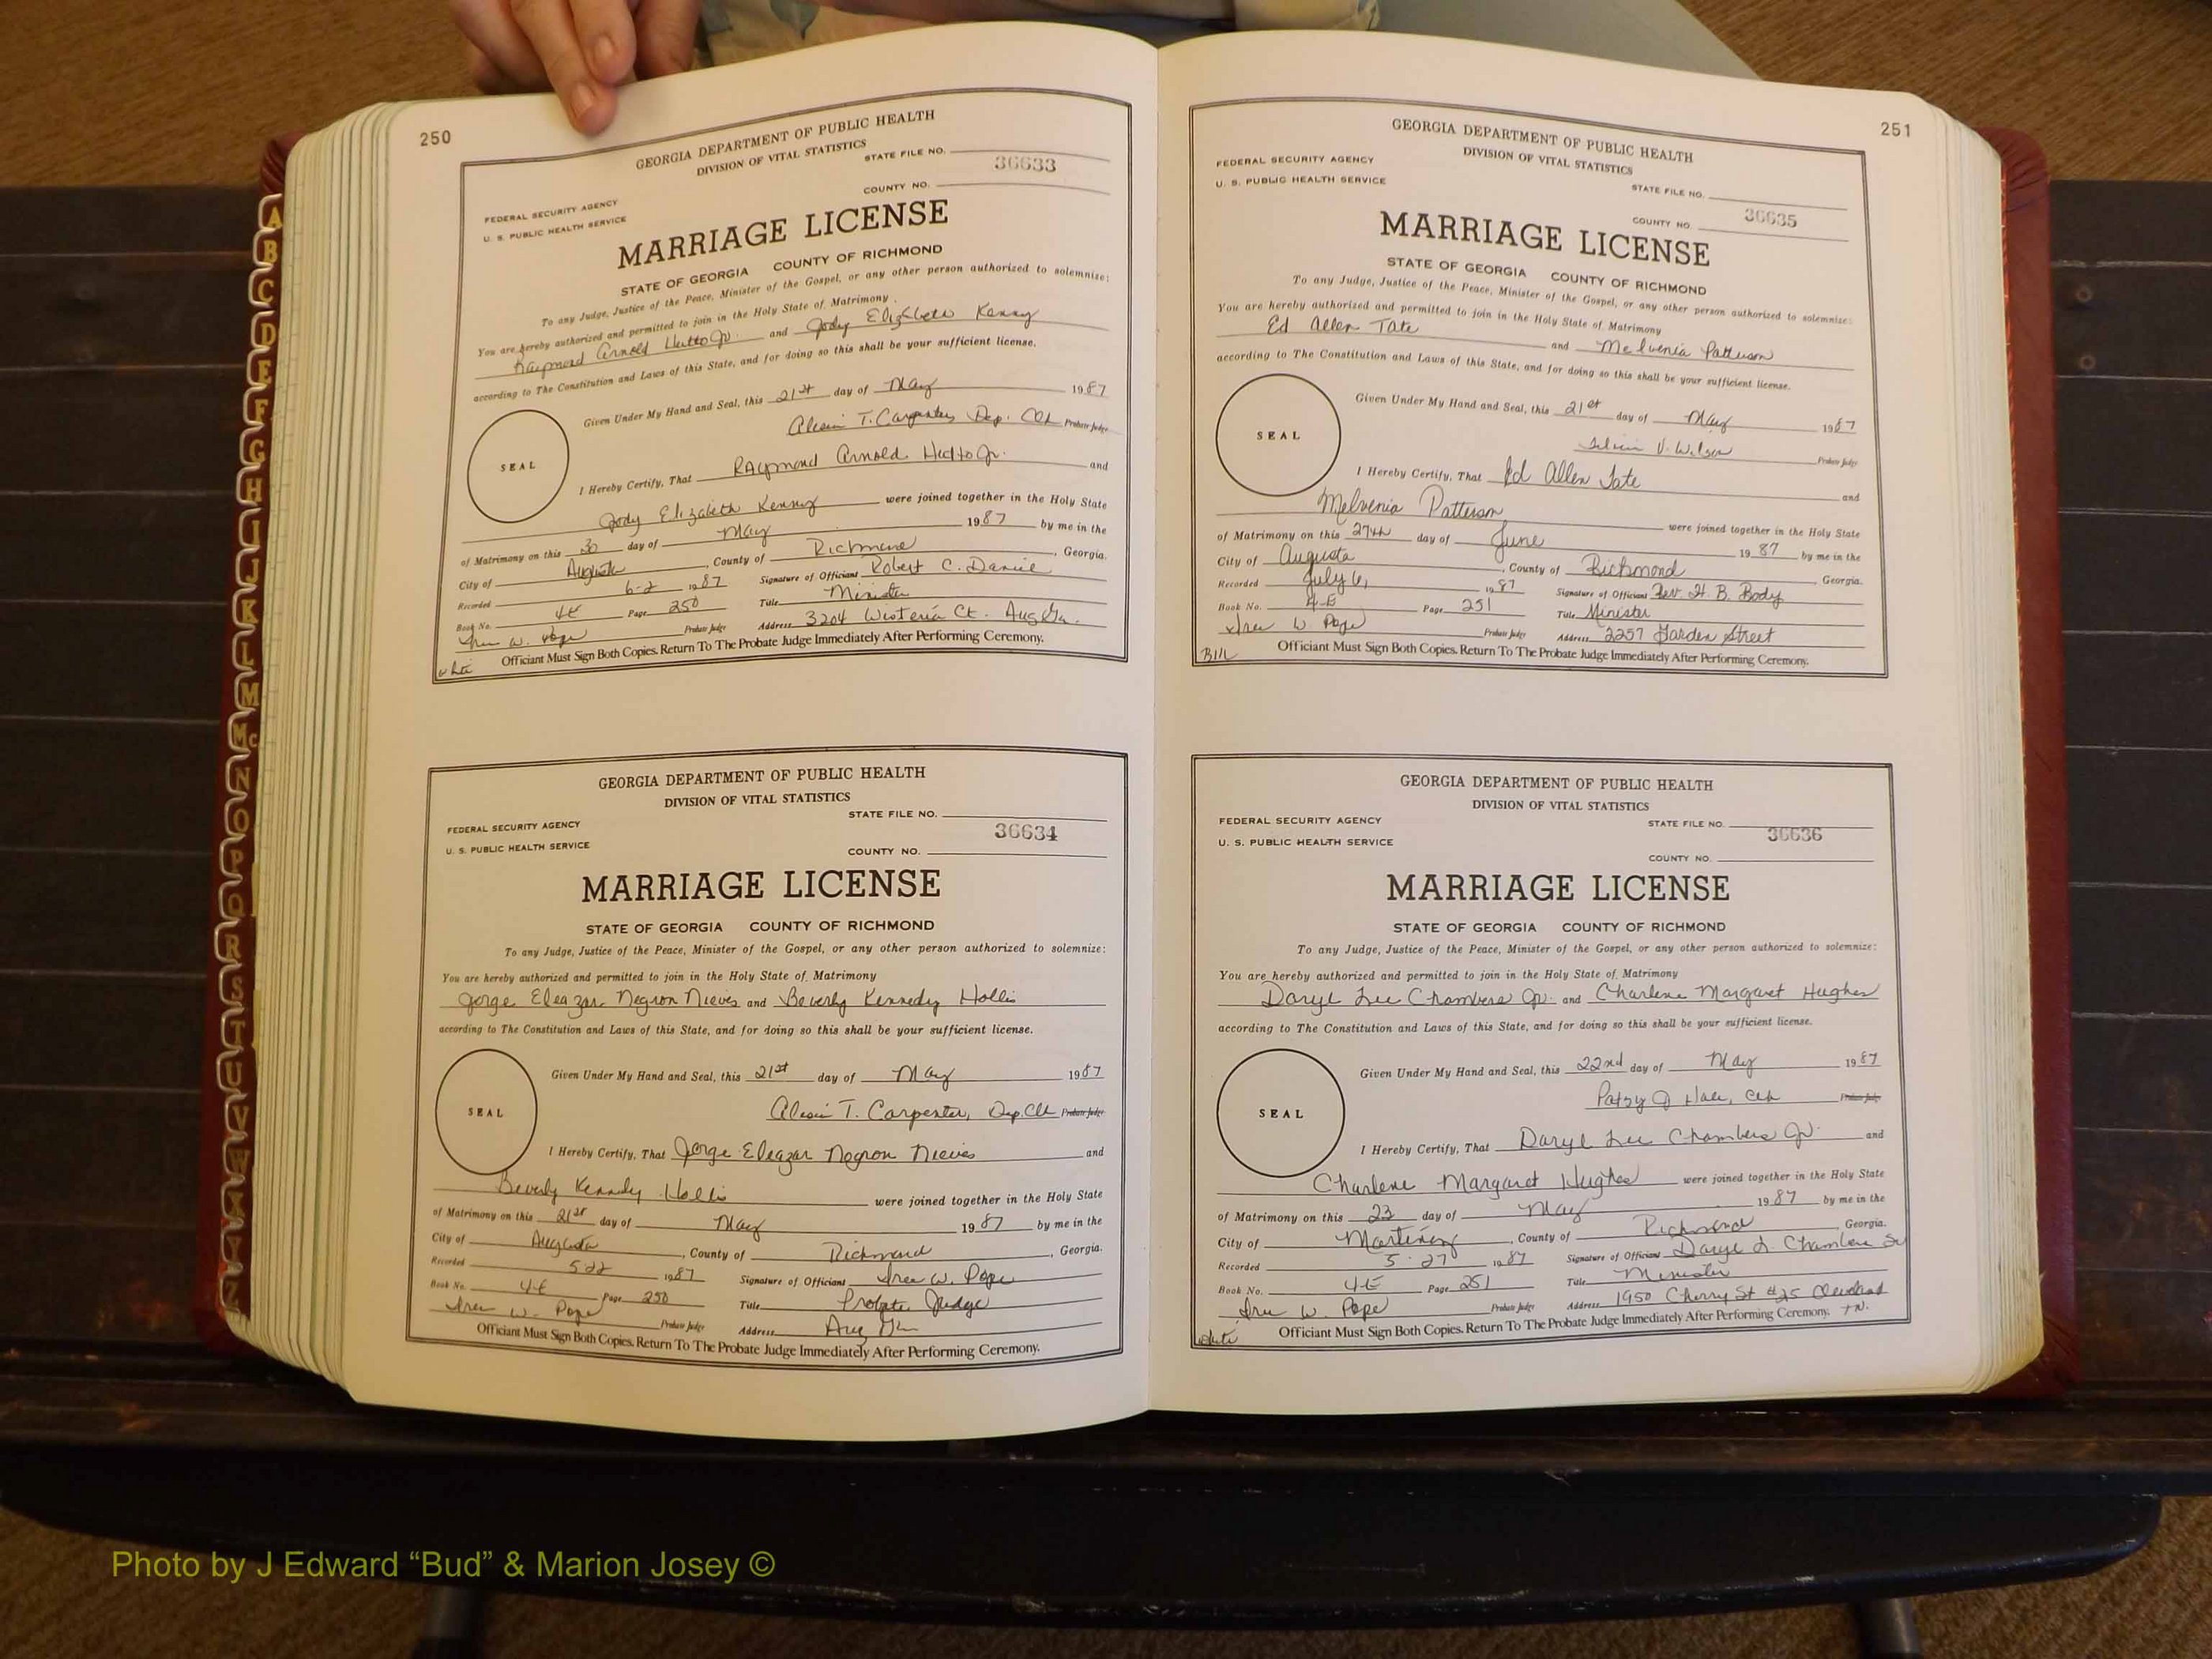 250
GEORGIA DEPARTMENT OF PUBLIC HEALTH
DIVISION OF VITAL STATISTICS
STATE FILE NO.
36633
COUNTY NO.
FEDERAL SECURITY AGENCY
U. S. PUBLIC HEALTH SERVICE
MARRIAGE LICENSE
STATE OF GEORGIA COUNTY OF RICHMOND
To any Judge, Justice of the Peace, Minister of the Gospel, or any other person authorized to solemnize:
You are hereby authorized and permitted to join in the Holy State of Matrimony
Raymond Arnold Hutto Jr. and Jody Elizabeth Kenny
according to The Constitution and Laws of this State, and for doing so this shall be your sufficient license.
Given Under My Hand and Seal, this 21st day of May 1987
T. Carpenter Dep. Clk Probate Judge
SEAL
I Hereby Certify, That Raymond Arnold Hutto Jr. and
Jody Elizabeth Kenny were joined together in the Holy State
of Matrimony on this 30 day of May 1987 by me in the
City of Augusta, County of Richmond, Georgia.
Recorded 6-2 1987 Signature of Officiant Robert C. Daniel
Book No. 4E Page 250 Title Minister
W. Pope Probate Judge Address 3204 Wisteria Ct. Aug Ga.
Officiant Must Sign Both Copies. Return To The Probate Judge Immediately After Performing Ceremony.
white
GEORGIA DEPARTMENT OF PUBLIC HEALTH
DIVISION OF VITAL STATISTICS
STATE FILE NO.
36634
COUNTY NO.
FEDERAL SECURITY AGENCY
U. S. PUBLIC HEALTH SERVICE
MARRIAGE LICENSE
STATE OF GEORGIA COUNTY OF RICHMOND
To any Judge, Justice of the Peace, Minister of the Gospel, or any other person authorized to solemnize:
You are hereby authorized and permitted to join in the Holy State of Matrimony
Jorge Eleazar Negron Nieves and Beverly Kennedy Hollis
according to The Constitution and Laws of this State, and for doing so this shall be your sufficient license.
Given Under My Hand and Seal, this 21st day of May 1987
T. Carpenter, Dep. Clk Probate Judge
SEAL
I Hereby Certify, That Jorge Eleazar Negron Nieves and
Beverly Kennedy Hollis were joined together in the Holy State
of Matrimony on this 21st day of May 1987 by me in the
City of Augusta, County of Richmond, Georgia.
Recorded 5-22 1987 Signature of Officiant W. Pope
Book No. 4-E Page 250 Title Probate Judge
W. Pope Probate Judge Address Aug Ga
Officiant Must Sign Both Copies. Return To The Probate Judge Immediately After Performing Ceremony.
251
GEORGIA DEPARTMENT OF PUBLIC HEALTH
DIVISION OF VITAL STATISTICS
FEDERAL SECURITY AGENCY
U. S. PUBLIC HEALTH SERVICE
STATE FILE NO.
36635
COUNTY NO.
MARRIAGE LICENSE
STATE OF GEORGIA COUNTY OF RICHMOND
To any Judge, Justice of the Peace, Minister of the Gospel, or any other person authorized to solemnize:
You are hereby authorized and permitted to join in the Holy State of Matrimony
Ed Allen Tate and Melvenia Patterson
according to The Constitution and Laws of this State, and for doing so this shall be your sufficient license.
Given Under My Hand and Seal, this 21st day of May 1987
V. Wilson Probate Judge
SEAL
I Hereby Certify, That Ed Allen Tate and
Melvenia Patterson were joined together in the Holy State
of Matrimony on this 27th day of June 1987 by me in the
City of Augusta, County of Richmond, Georgia.
Recorded July 6, 1987 Signature of Officiant Rev. H. B. Body
Book No. 4-E Page 251 Title Minister
W Pope Probate Judge Address 2257 Garden Street
Officiant Must Sign Both Copies. Return To The Probate Judge Immediately After Performing Ceremony.
GEORGIA DEPARTMENT OF PUBLIC HEALTH
DIVISION OF VITAL STATISTICS
FEDERAL SECURITY AGENCY
U. S. PUBLIC HEALTH SERVICE
STATE FILE NO.
36636
COUNTY NO.
MARRIAGE LICENSE
STATE OF GEORGIA COUNTY OF RICHMOND
To any Judge, Justice of the Peace, Minister of the Gospel, or any other person authorized to solemnize:
You are hereby authorized and permitted to join in the Holy State of Matrimony
Daryl Lee Chambers Jr. and Charlene Margaret Hughes
according to The Constitution and Laws of this State, and for doing so this shall be your sufficient license.
Given Under My Hand and Seal, this 22nd day of May 1987
Patsy Clk Probate Judge
SEAL
I Hereby Certify, That Daryl Lee Chambers Jr. and
Charlene Margaret Hughes were joined together in the Holy State
of Matrimony on this 23 day of May 1987 by me in the
City of Martinez, County of Richmond, Georgia.
Recorded 5-27 1987 Signature of Officiant Daryl L. Chambers Sr
Book No. 4-E Page 251 Title Minister
W Pope Probate Judge Address 1950 Cherry St #25 Cleveland TN.
Officiant Must Sign Both Copies. Return To The Probate Judge Immediately After Performing Ceremony.
white
A
B
C
D
E
F
G
H
I
J
K
L
M
Mc
N
O
P
Q
R
S
T
U
V
W
X
Y
Z
Photo by J Edward “Bud” & Marion Josey ©